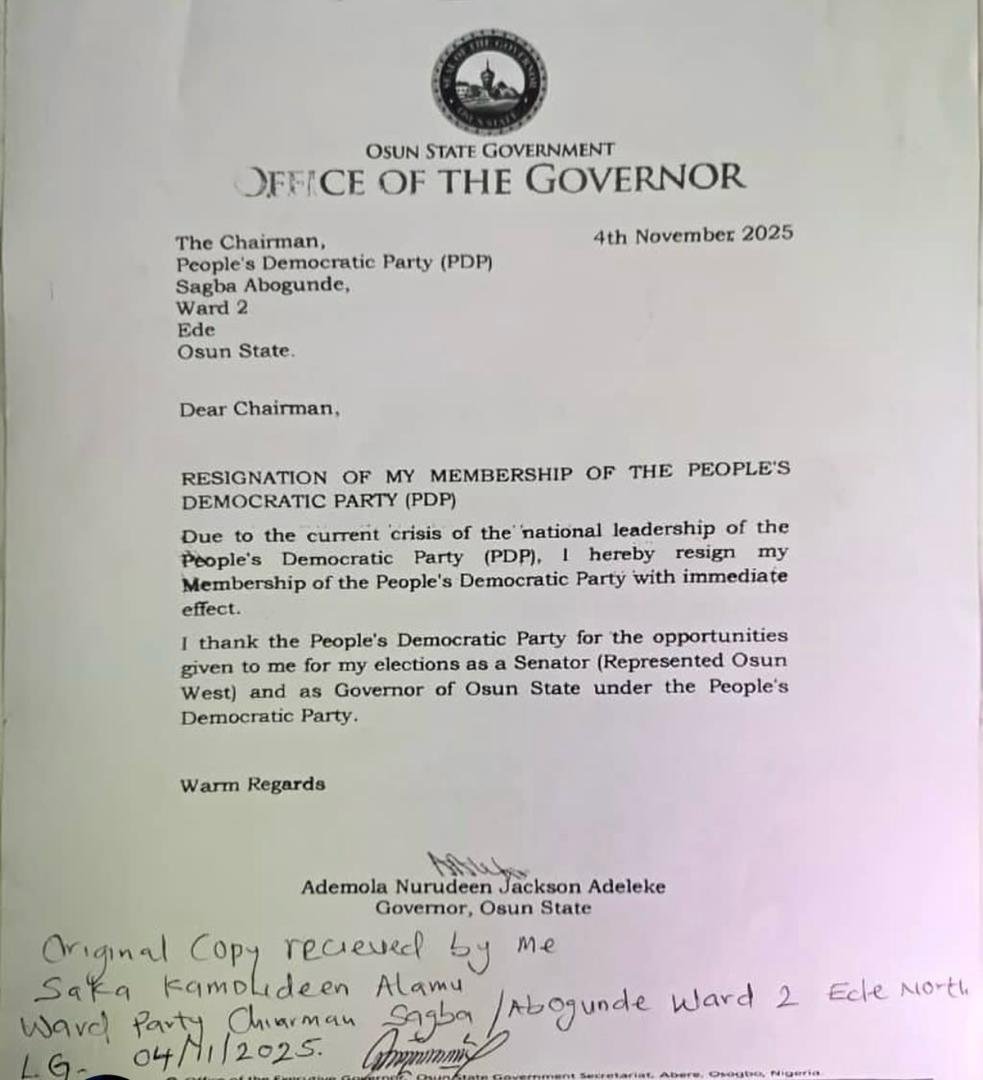 SEAL OF THE GOVERNOR
OSUN STATE
OSUN STATE GOVERNMENT
OFFICE OF THE GOVERNOR
4th November 2025
The Chairman,
People's Democratic Party (PDP)
Sagba Abogunde,
Ward 2
Ede
Osun State.
Dear Chairman,
RESIGNATION OF MY MEMBERSHIP OF THE PEOPLE'S
DEMOCRATIC PARTY (PDP)
Due to the current crisis of the national leadership of the
People's Democratic Party (PDP), I hereby resign my
Membership of the People's Democratic Party with immediate
effect.
I thank the People's Democratic Party for the opportunities
given to me for my elections as a Senator (Represented Osun
West) and as Governor of Osun State under the People's
Democratic Party.
Warm Regards
Ademola Nurudeen Jackson Adeleke
Governor, Osun State
Original Copy recieved by me
Saka Kamolideen Alamu
Ward Party Chiarman Sagba /Abogunde Ward 2 Ede North
L.G. 04/11/2025.
Office of the Executive Governor, Osun State Government Secretariat, Abere, Osogbo, Nigeria.